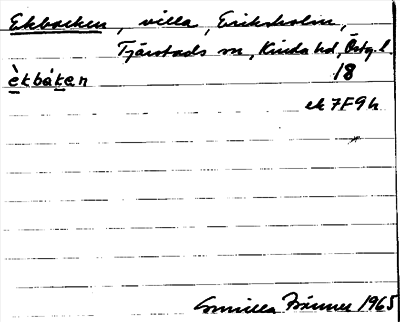 Ekbacken, villa, Eriksholm,
Tjärstads sn, Kinda hd, Östg. l.
èkbáken 18
ek 7F9h
Gunilla 1965